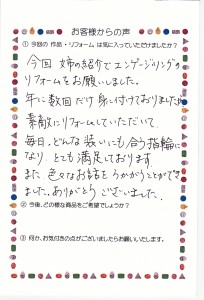 お客様からの声
① 今回の 作品・リフォーム は気に入っていただけましたか？
今回 姉の紹介で エンゲージリングの
リフォームをお願いしました。
年に数回だけ身に付けておりましたが
素敵にリフォームしていただいて
毎日、どんな装いにも合う指輪に
なり とても満足しております。
また 色々なお話を うかがうことができ
ました。ありがとう ございました。
② 今後、どの様な商品をご希望でしょうか？
③ 何か、お気付きの点がございましたらお願いいたします。